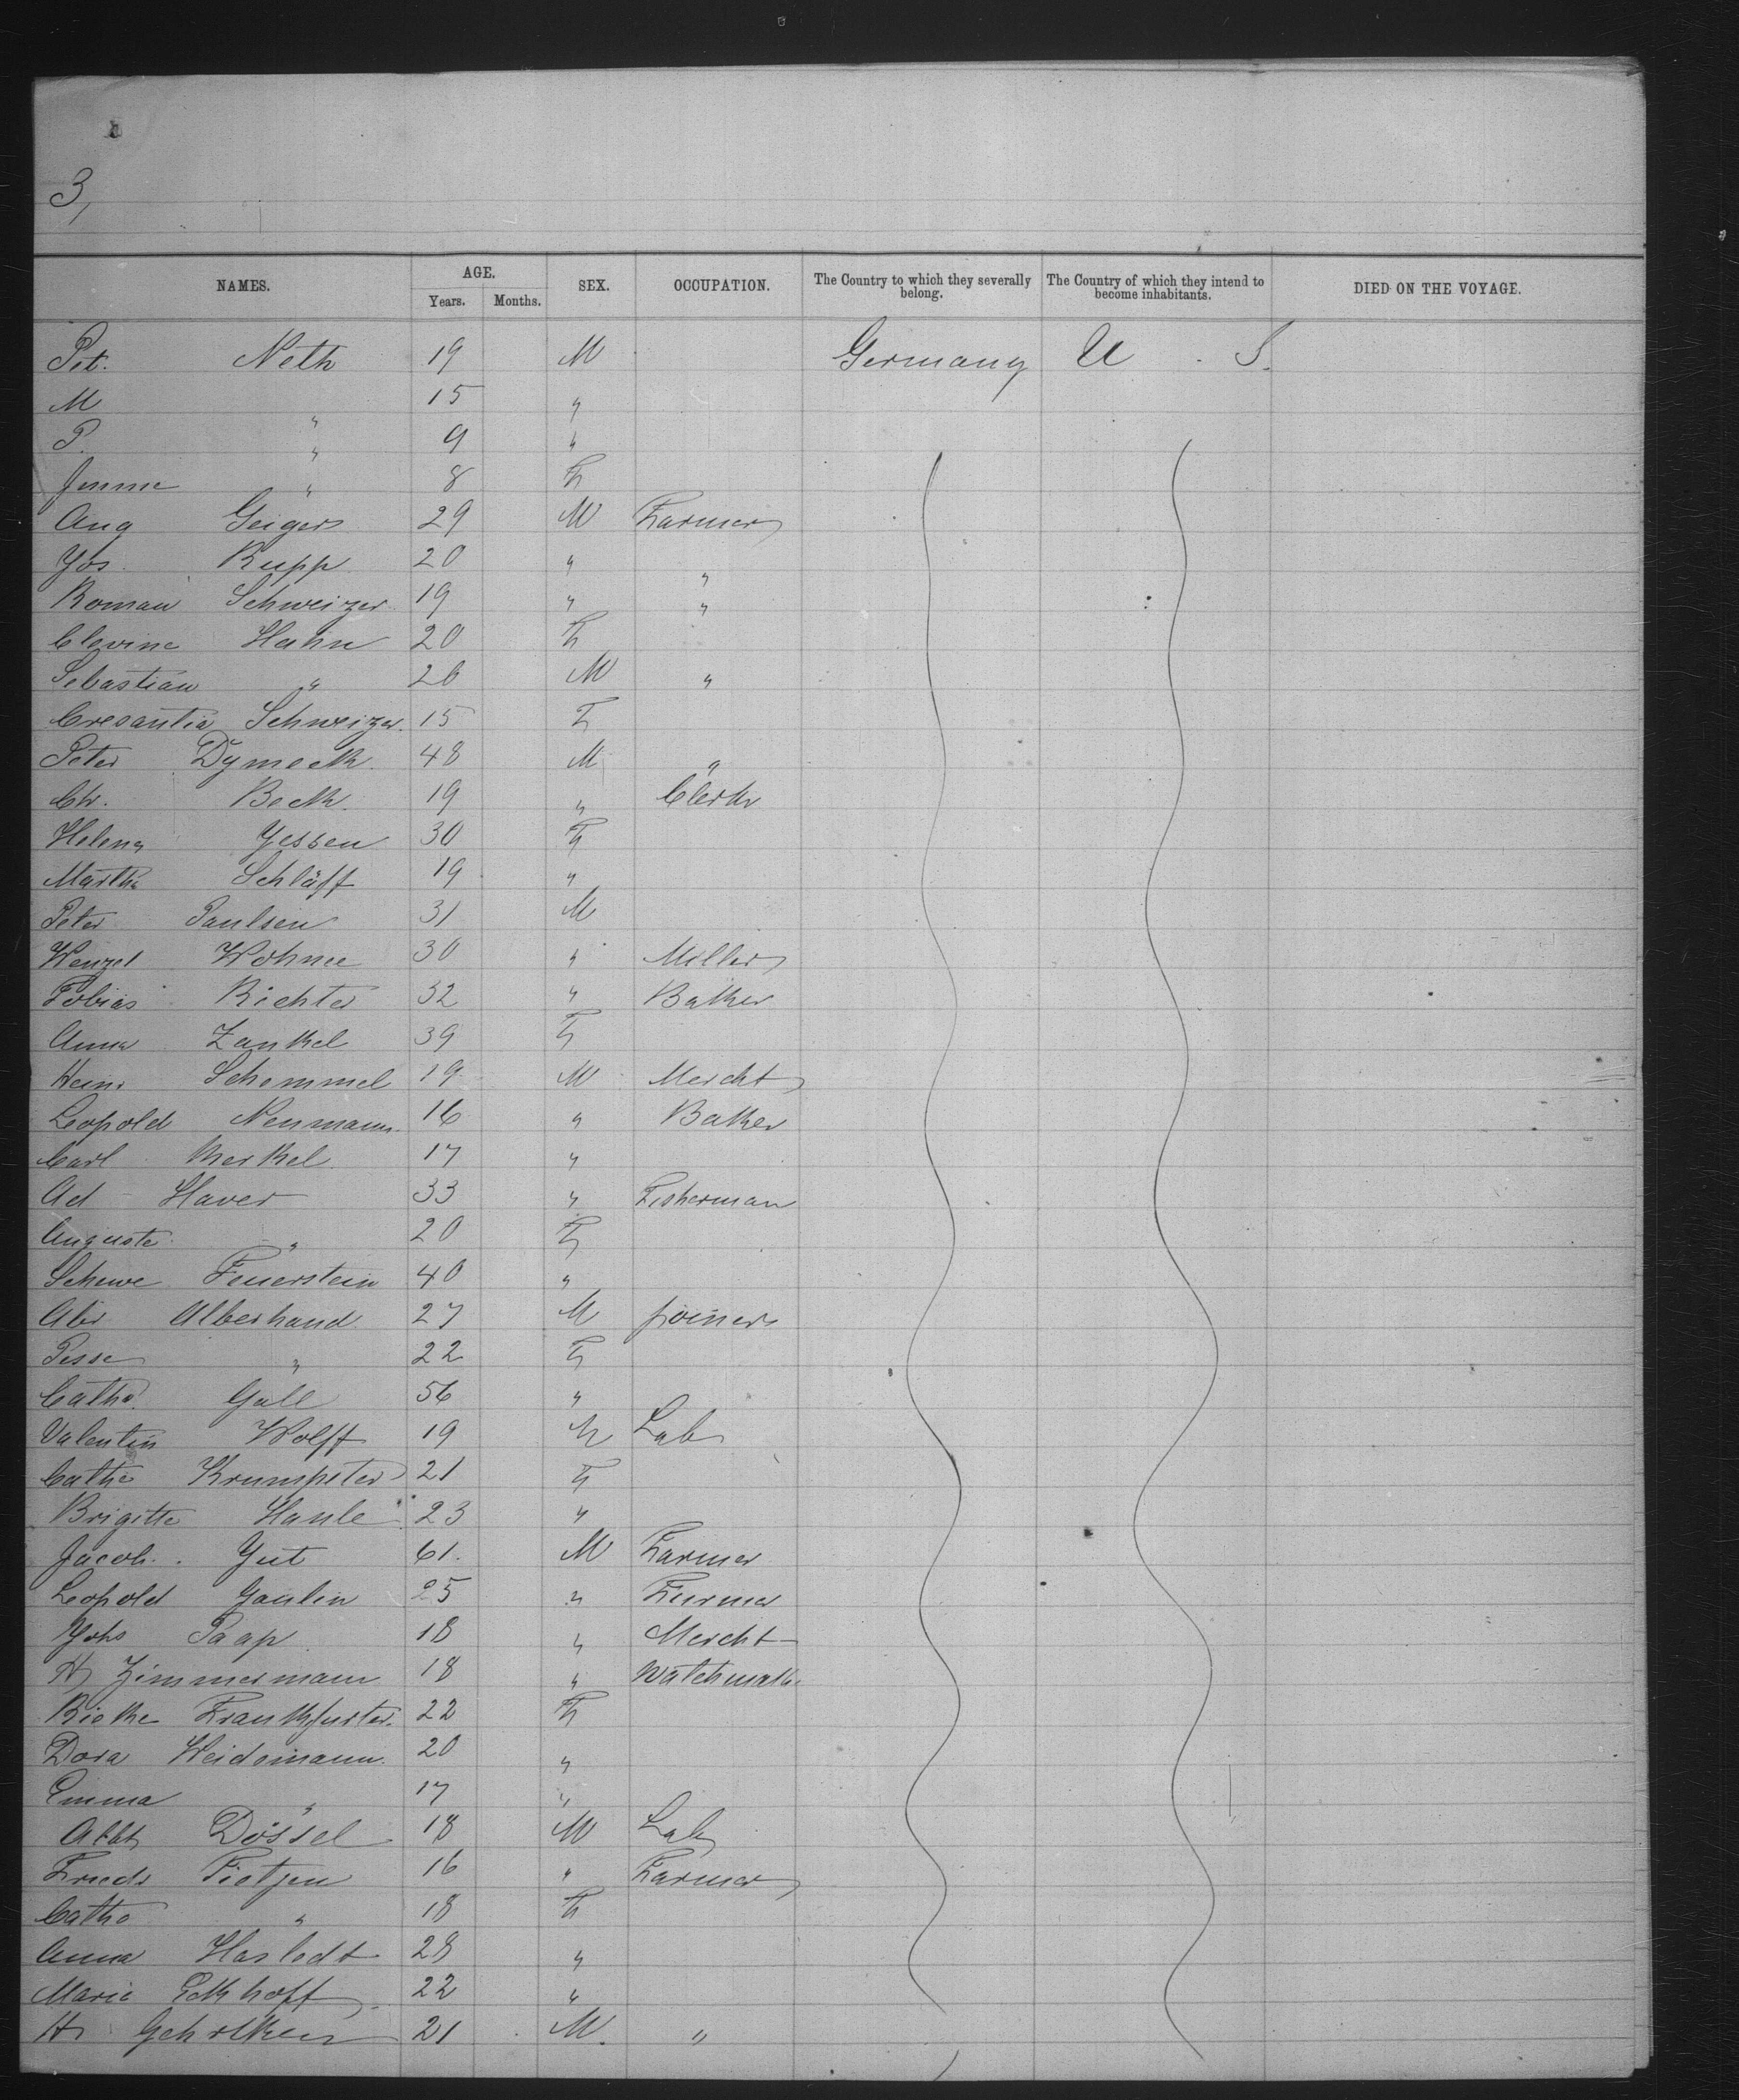 3,
NAMES. AGE. SEX. OCCUPATION. The Country to which they severally belong. The Country of which they intend to become inhabitants. DIED ON THE VOYAGE.
Years. Months.
Pet. Neth 19 M Germany U. S.
M " 15 "
P. " 9 "
Jenne " 8 F
Aug Geiger 29 M Farmer
Jos. Rupp 20 " "
Roman Schweizer 19 " "
Clevine Hahn 20 F
Sebastian " 26 M "
Cresantia Schweizer 15 F
Peter Dymeck 48 M "
Chr. Beck 19 " Clerk
Helena Jessen 30 F
Martha Schläff 19 "
Peter Paulsen 31 M
Wenzel Wohnee 30 " Miller
Tobias Richter 32 " Baker
Anna Zankel 39 F
Heinr Schemmel 19 M Mercht
Leopold Neumann 16 " Baker
Carl Merkel 17 "
Ad Haver 33 " Fisherman
Auguste " 20 F
Schewe Feuerstein 40 "
Abr Alberhand 27 M joiner
Pesse " 22 F
Cathe. Gall 56 "
Valentin Wolff 19 M Lab
Cathe Krumpeter 21 F
Brigitte Hanle 23 "
Jacob. Gut 61. M Farmer
Leopold Gaulin 25 " Farmer
Johs Paap 18 " Mercht
H Zimmermann 18 " Watchmak.
Rieke Frankfurter. 22 F
Dora Weidemann. 20 "
Emma " 17 "
Albt Dössel 18 M Lab
Friedr Tietjen 16 " Farmer
Cathe " 18 F
Anna Hasledt 28 "
Marie Eckhoff 22 "
H Gehrken 21 M. "